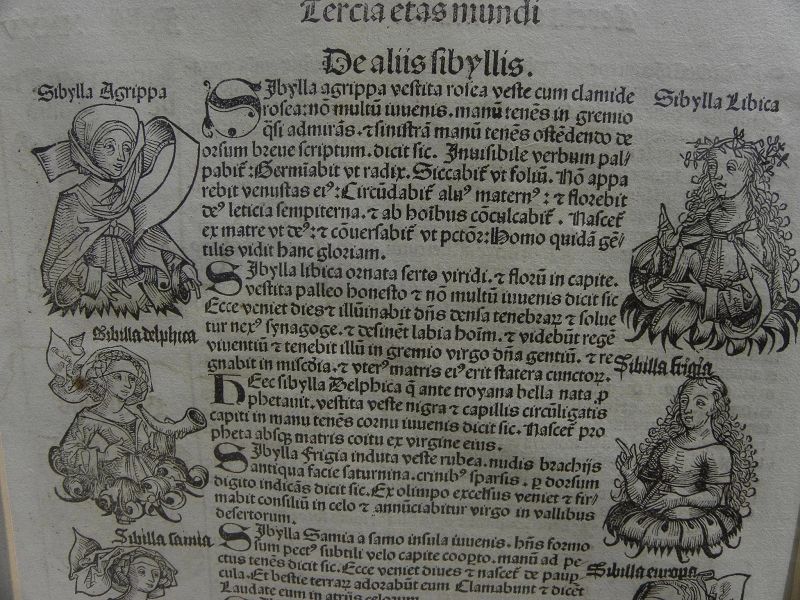 Tercia etas mundi
De aliis sibyllis.
Sibylla Agrippa
Sibylla agrippa vestita rosea veste cum clamide
rosea: nō multū iuuenis. manū tenēs in gremio
q̄si admirās. ⁊ sinistrā manū tenēs ostēdendo de
orsum breue scriptum. dicit sic. Inuisibile verbum pal⸗
pabit᷑: Germiabit vt radix. Siccabit᷑ vt foliū. Nō appa
rebit venustas eiꝰ: Circūdabit᷑ aluꝰ maternꝰ: ⁊ florebit
deꝰ leticia sempiterna. ⁊ ab hoībus cōculcabit᷑. Nascet᷑
ex matre vt deꝰ: ⁊ cōuersabit᷑ vt pctōr: Homo quidā gē⸗
tilis vidit hanc gloriam.
Sibylla Libica
Sibylla libica ornata serto viridi. ⁊ florū in capite.
vestita palleo honesto ⁊ nō multū iuuenis dicit sic
Ecce veniet dies ⁊ illūinabit dn̄s densa tenebraꝝ ⁊ solue
tur nexꝰ synagoge. ⁊ desinēt labia hoīm. ⁊ videbūt regē
viuentiū ⁊ tenebit illū in gremio virgo dn̄a gentiū. ⁊ re
gnabit in mīscdīa. ⁊ vterꝰ matris eiꝰ erit statera cunctoꝝ.
Sibilla delphica
Hec sibylla Delphica q̄ ante troyana bella nata. ꝓ
phetauit. vestita veste nigra ⁊ capillis circūligatis
capiti in manu tenēs cornu iuuenis dicit sic. Nascet᷑ pro
pheta absqꝫ matris coitu ex virgine eius.
Sibilla frigia
Sibylla frigia induta veste rubea. nudis brachijs
antiqua facie saturnina. crinibꝰ sparsis. ꝑ dorsum
digito indicās dicit sic. Ex olimpo excelsus veniet ⁊ fir⸗
mabit consiliū in celo ⁊ annūciabitur virgo in vallibus
desertorum.
Sibilla samia
Sibylla Samia a samo insula iuuenis. hn̄s formo
sum pectꝰ subtili velo capite cooꝑto. manū ad pe
ctus tenēs dicit sic. Ecce veniet diues ⁊ nascet᷑ de pauꝑ
cula. Et bestie terraꝝ adorabūt eum Clamabunt ⁊ dicēt
Laudate eum in atrijs celorum
Sibilla europa